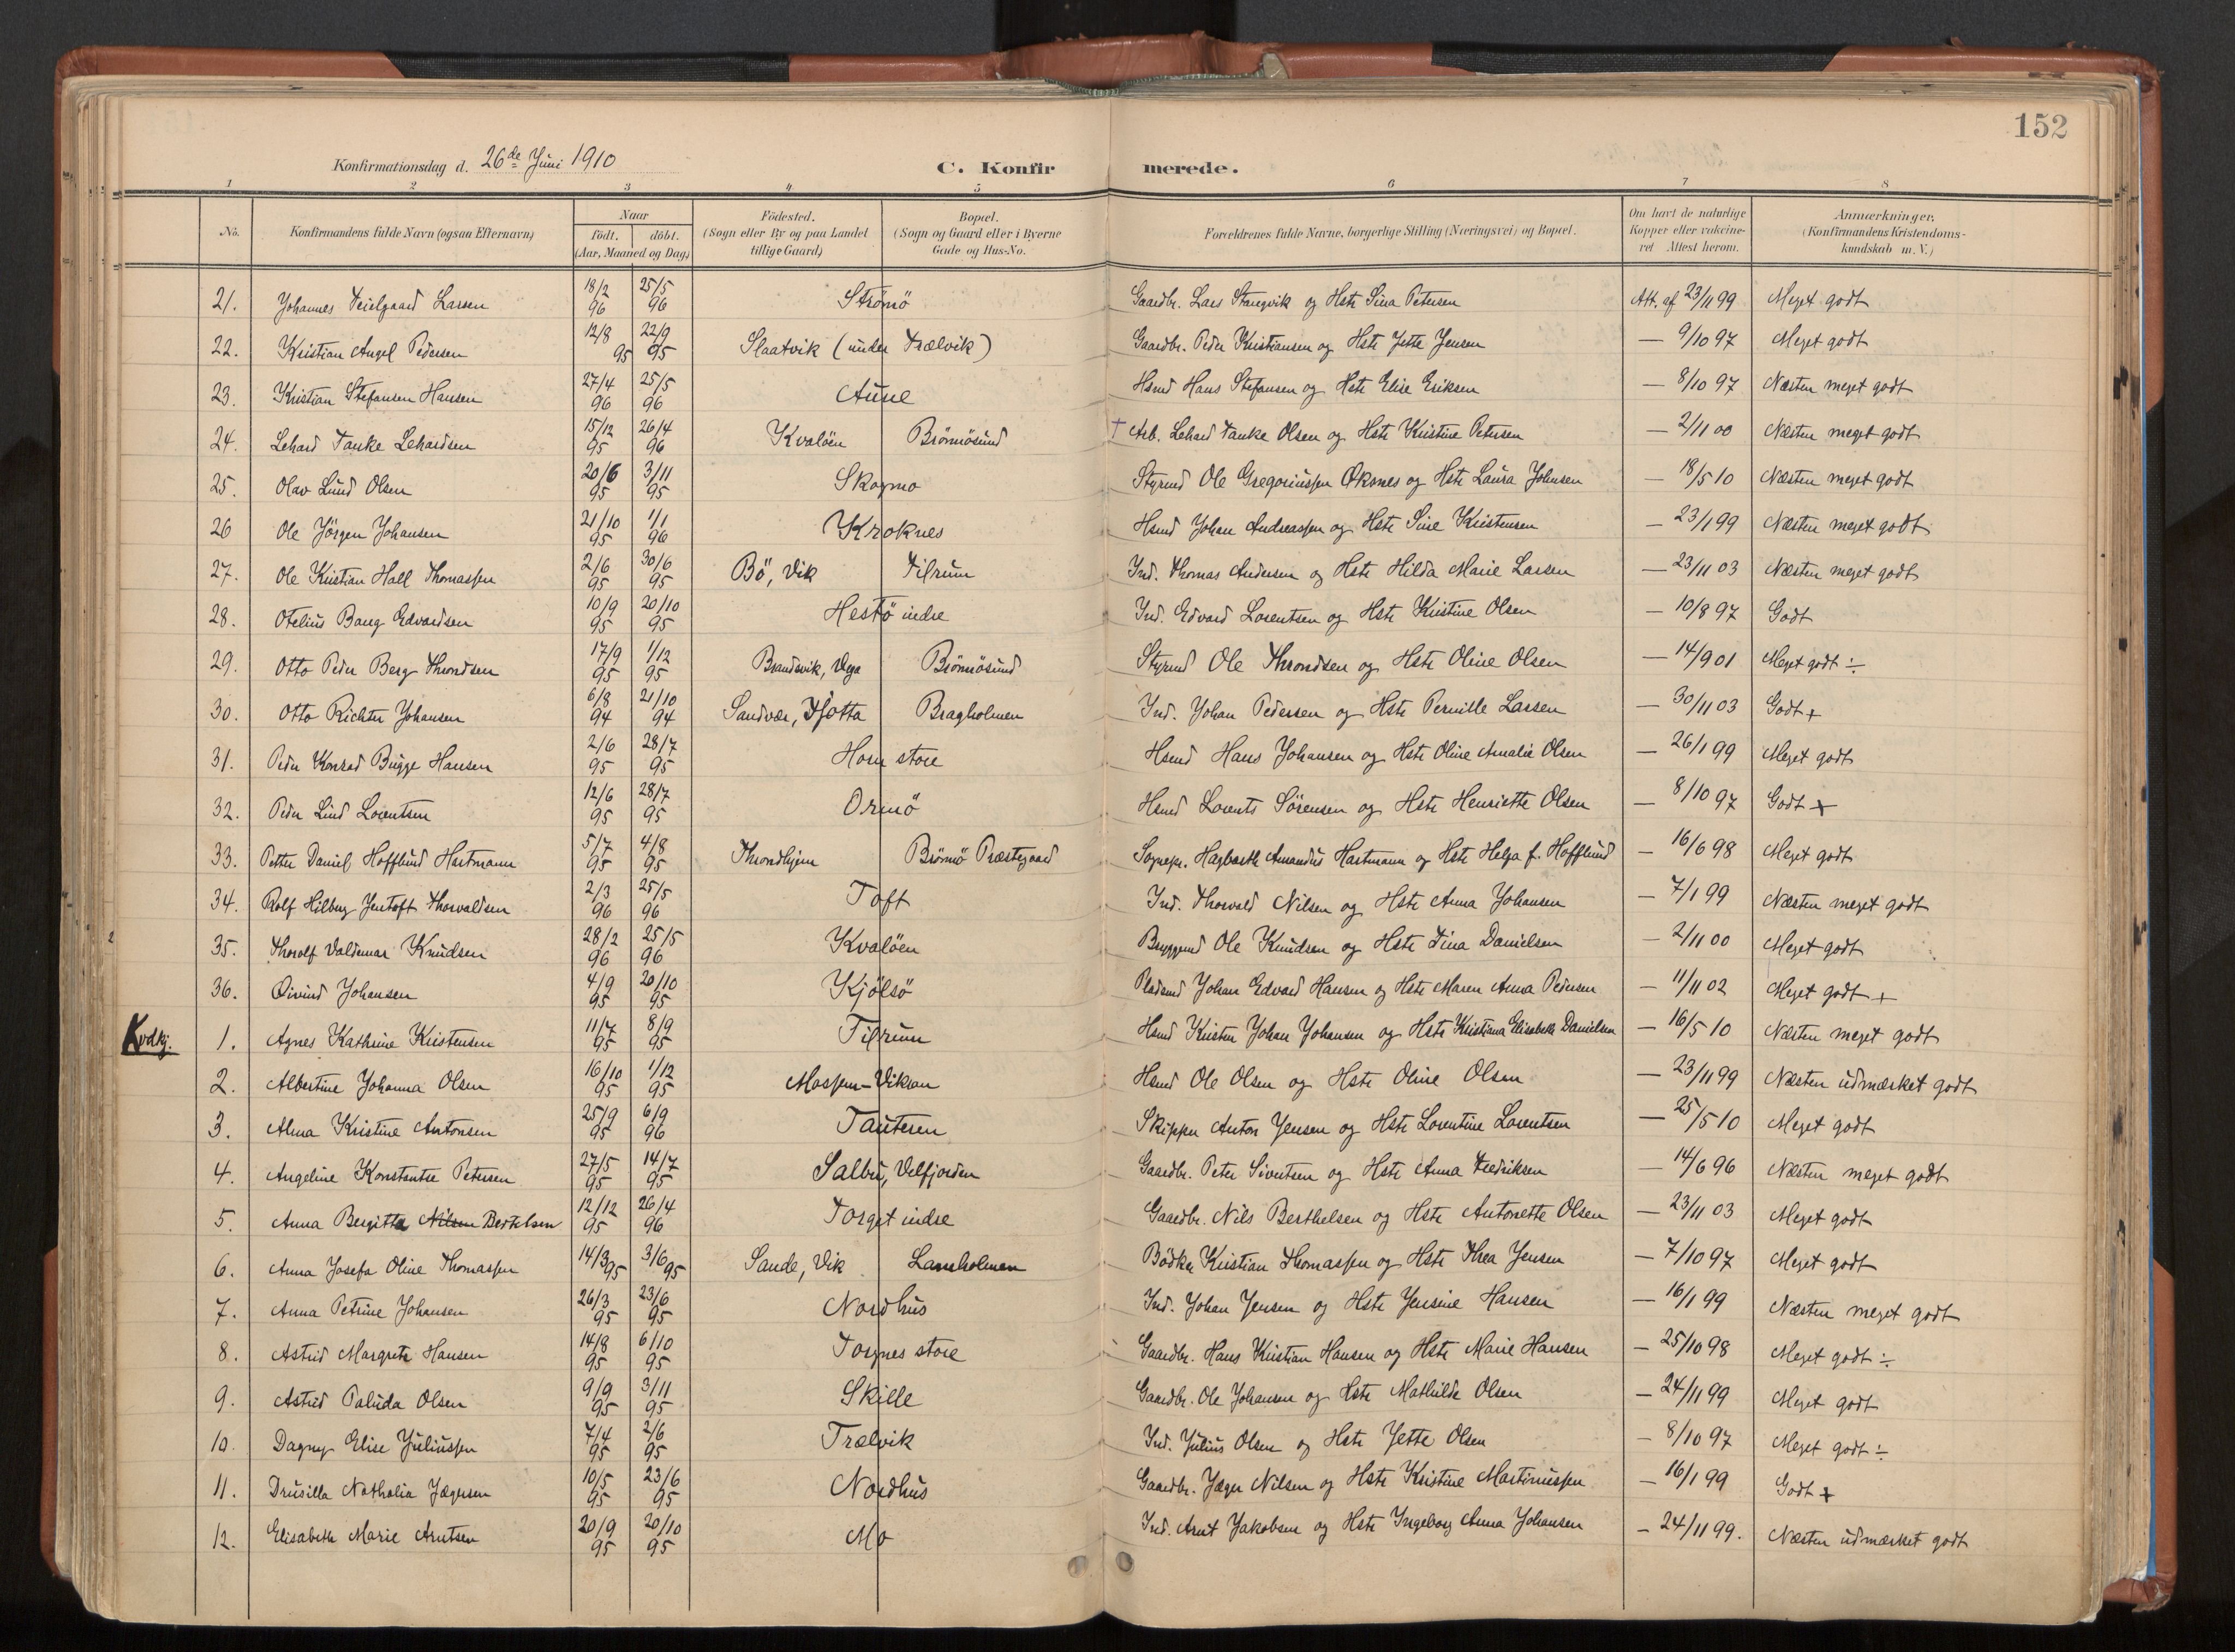 152
Konfirmationsdag d. 26de Juni 1910 C. Konfirmerede.
1 2 3 4 5 6 7 8
No. Konfirmandens fulde Navn (ogsaa Efternavn) Naar født. døbt. (Aar, Maaned og Dag) Fødested. (Sogn eller By og paa Landet tillige Gaard) Bopæl. (Sogn og Gaard eller i Byerne Gade og Hus-No. Forældrenes fulde Navne, borgerlige Stilling (Næringsvei) og Bopæl. Om havt de naturlige Kopper eller vaccineret Attest herom. Anmærkninger. (Konfirmandens Kristendomskundskab m. V.)
21. Johannes Teilgaard Larsen 18/2 96 25/5 96 Strømö Gaardbr. Lars Stangvik og Hstr Sina Petersen Att. af 23/11 99 Meget godt
22. Kristian Angel Pedersen 12/8 95 22/9 95 Slaatvik (under Trælvik) Gaardbr. Peder Kristiansen og Hstr Jette Jensen — 9/10 97 Meget godt
23. Kristian Stefansen Hansen 27/4 96 25/5 96 Aune Hsmd Hans Stefansen og Hstr Elise Eriksen — 8/10 97 Næsten meget godt
24. Lehard Tanke Lehardsen 15/12 95 26/4 96 Kvalöen Brönnösund † Arb. Lehard Tanke Olsen og Hstr Kristine Petersen — 2/11 00 Næsten meget godt
25. Olav Lund Olsen 20/6 95 3/11 95 Skogmo Styrmd Ole Gregoriussen Øksnes og Hstr Laura Johnsen — 18/5 10 Næsten meget godt
26 Ole Jörgen Johansen 21/10 95 1/1 96 Kroknes Hsmd Johan Andreassen og Hstr Sine Kristensen — 23/1 99 Næsten meget godt
27. Ole Kristian Hall Thomassen 2/6 95 30/6 95 Bö, Vik Tilrum Ind. Thomas Andersen og Hstr Hilda Marie Larsen — 23/11 03 Næsten meget godt
28. Otelius Bang Edvardsen 10/9 95 20/10 95 Hestö indre Ind. Edvard Lorentsen og Hstr Kristine Olsen — 10/8 97 Godt
29. Otto Peder Berg Throndsen 17/9 95 1/12 95 Brandsvik, Vega Brönnösund Styrmd Ole Throndsen og Hstr Oline Olsen — 14/9 01 Meget godt ÷
30. Otto Richter Johansen 6/8 94 21/10 94 Sandvær, Tjotta Bragholmen Ind. Johan Pedersen og Hstr Pernille Larsen — 30/11 03 Godt +
31. Peder Konrad Bugge Hansen 2/6 95 28/7 95 Horn store Hsmd Hans Johansen og Hstr Oline Amalie Olsen — 26/1 99 Meget godt
32. Peder Lind Lorentsen 12/6 95 28/7 95 Ormö Hsmd Lorents Sörensen og Hstr Henriette Olsen — 8/10 97 Godt +
33. Petter Daniel Hofflund Hartmann 5/7 95 4/8 95 Throndhjem Brömö Præstegaard Sognepr. Hagbarth Amandus Hartmann og Hstr Helga f. Hofflund — 16/6 98 Meget godt
34. Rolf Hilberg Jentoft Thorvaldsen 2/3 96 25/5 96 Toft Ind. Thorvald Nilsen og Hstr Anna Johansen — 7/1 99 Næsten meget godt
35. Thorolf Valdemar Knudsen 28/2 96 25/5 96 Kvalöen Bryggmd Ole Knudsen og Hstr Tina Danielsen — 2/11 00 Meget godt
36. Öivind Johansen 4/9 95 20/10 95 Kjölsö Pladsmd Johan Edvard Hansen og Hstr Maren Anna Pedersen — 11/11 02 Meget godt +
Kvdkj.
1. Agnes Kathrine Kristensen 11/7 95 8/9 95 Tilrum Hsmd Kristen Johan Johansen og Hstr Kristiana Elisabeth Danielsen — 16/5 10 Næsten meget godt
2. Albertine Johanna Olsen 16/10 95 1/12 95 Mossem-Vikran Hsmd Ole Olsen og Hstr Oline Olsen — 23/11 99 Næsten udmærket godt
3. Alma Kristine Antonsen 25/9 95 6/9 96 Tauteren Skipper Anton Jensen og Hstr Lorentine Lorentsen — 25/5 10 Meget godt
4. Angeline Konstantse Petersen 27/5 95 14/7 95 Salbu, Velfjorden Gaardbr. Peter Sivertsen og Hstr Anna Fredriksen — 14/6 96 Næsten meget godt
5. Anna Bergitta Nilsen Bertelsen 12/12 95 26/4 96 Torget indre Gaardbr. Nils Berthelsen og Hstr Antonette Olsen — 23/11 03 Meget godt
6. Anna Josefa Oline Thomassen 14/3 95 3/6 95 Sande, Vik Lamholmen Bödker Kristian Thomassen og Hstr Thea Jensen — 7/10 97 Meget godt
7. Anna Petrine Johansen 26/3 95 23/6 95 Nordhus Ind. Johan Jensen og Hstr Jensine Hansen — 16/1 99 Næsten meget godt
8. Astrid Margrete Hansen 14/8 95 6/10 95 Torgnes store Gaardbr. Hans Kristian Hansen og Hstr Marie Hansen — 25/10 98 Meget godt ÷
9. Astrid Palida Olsen 9/9 95 3/11 95 Skille Gaardbr. Ole Johansen og Hstr Mathilde Olsen — 24/11 99 Meget godt
10. Dagny Elise Juliussen 7/4 95 2/6 95 Trælvik Ind. Julius Olsen og Hstr Jette Olsen — 8/10 97 Meget godt ÷
11. Drusilla Nathalia Jægersen 10/5 95 23/6 95 Nordhus Gaardbr. Jæger Nilsen og Hstr Kristine Martinussen — 16/1 99 Godt +
12. Elisabeth Marie Arntsen 20/9 95 20/10 95 Mo Ind. Arnt Jakobsen og Hstr Ingeborg Anna Johansen — 24/11 99. Næsten udmærket godt